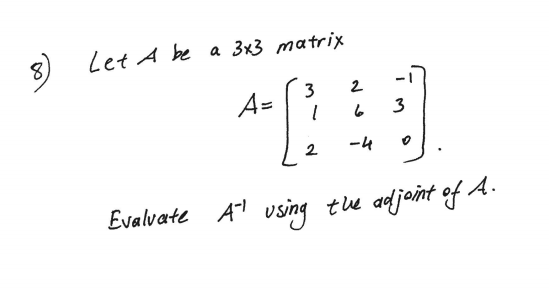 8) Let A be a 3x3 matrix
A = [ 3 2 -1
1 6 3
2 -4 0 ].
Evaluate A⁻¹ using the adjoint of A.